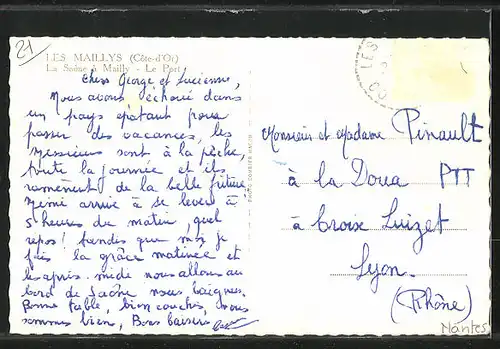 21
LES MAILLYS (Côte-d'Or)
La Saône à Mailly - Le Port
Chers George et Lucienne,
Nous avons échoué dans
un pays épatant pour
passer des vacances, les
messieurs sont à la pêche
toute la journée et ils
ramènent de la belle friture
Mimi arrive à se lever à
5 heures du matin, quel
repos! tandis que moi je
fais la grâce matinée et
les après-midi nous allons au
bord de Saône nous baigner.
Bonne table, bien couchés, nous
sommes bien, Bons baisers
LES
Monsieur et Madame Pinault
à la Doua PTT
à Croix Luizet
Lyon.
(Rhône)
Nantes